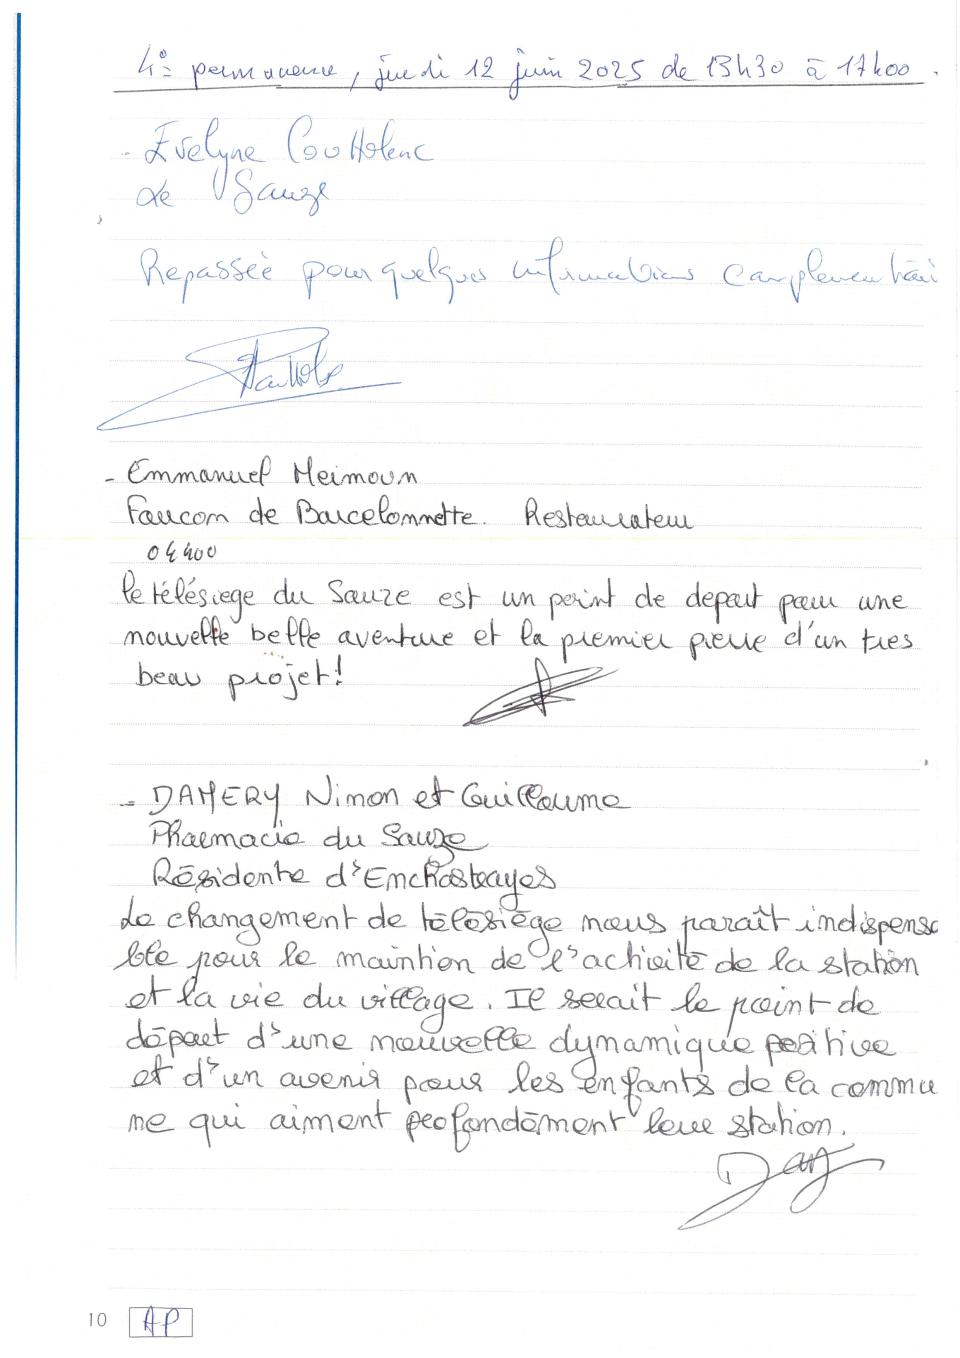 4e permanence, jeudi 12 juin 2025 de 13h30 à 17h00.
- Evelyne Couttolenc
Le Sauze
Repassée pour quelques informations complémentai
- Emmanuel Meimoun
Faucon de Barcelonnette. Restaurateur
04400
le télésiege du Sauze est un point de depart pour une
nouvelle belle aventure et la premier pierre d'un tres
beau projet!
- DAMERY Ninon et Guillaume
Pharmacie du Sauze
Résidente d'Enchastrayes
Le changement de télésiège nous paraît indispensa
ble pour le maintien de l'activité de la station
et la vie du village. Il serait le point de
départ d'une nouvelle dynamique positive
et d'un avenir pour les enfants de la commu
ne qui aiment profondément leur station.
10 AP